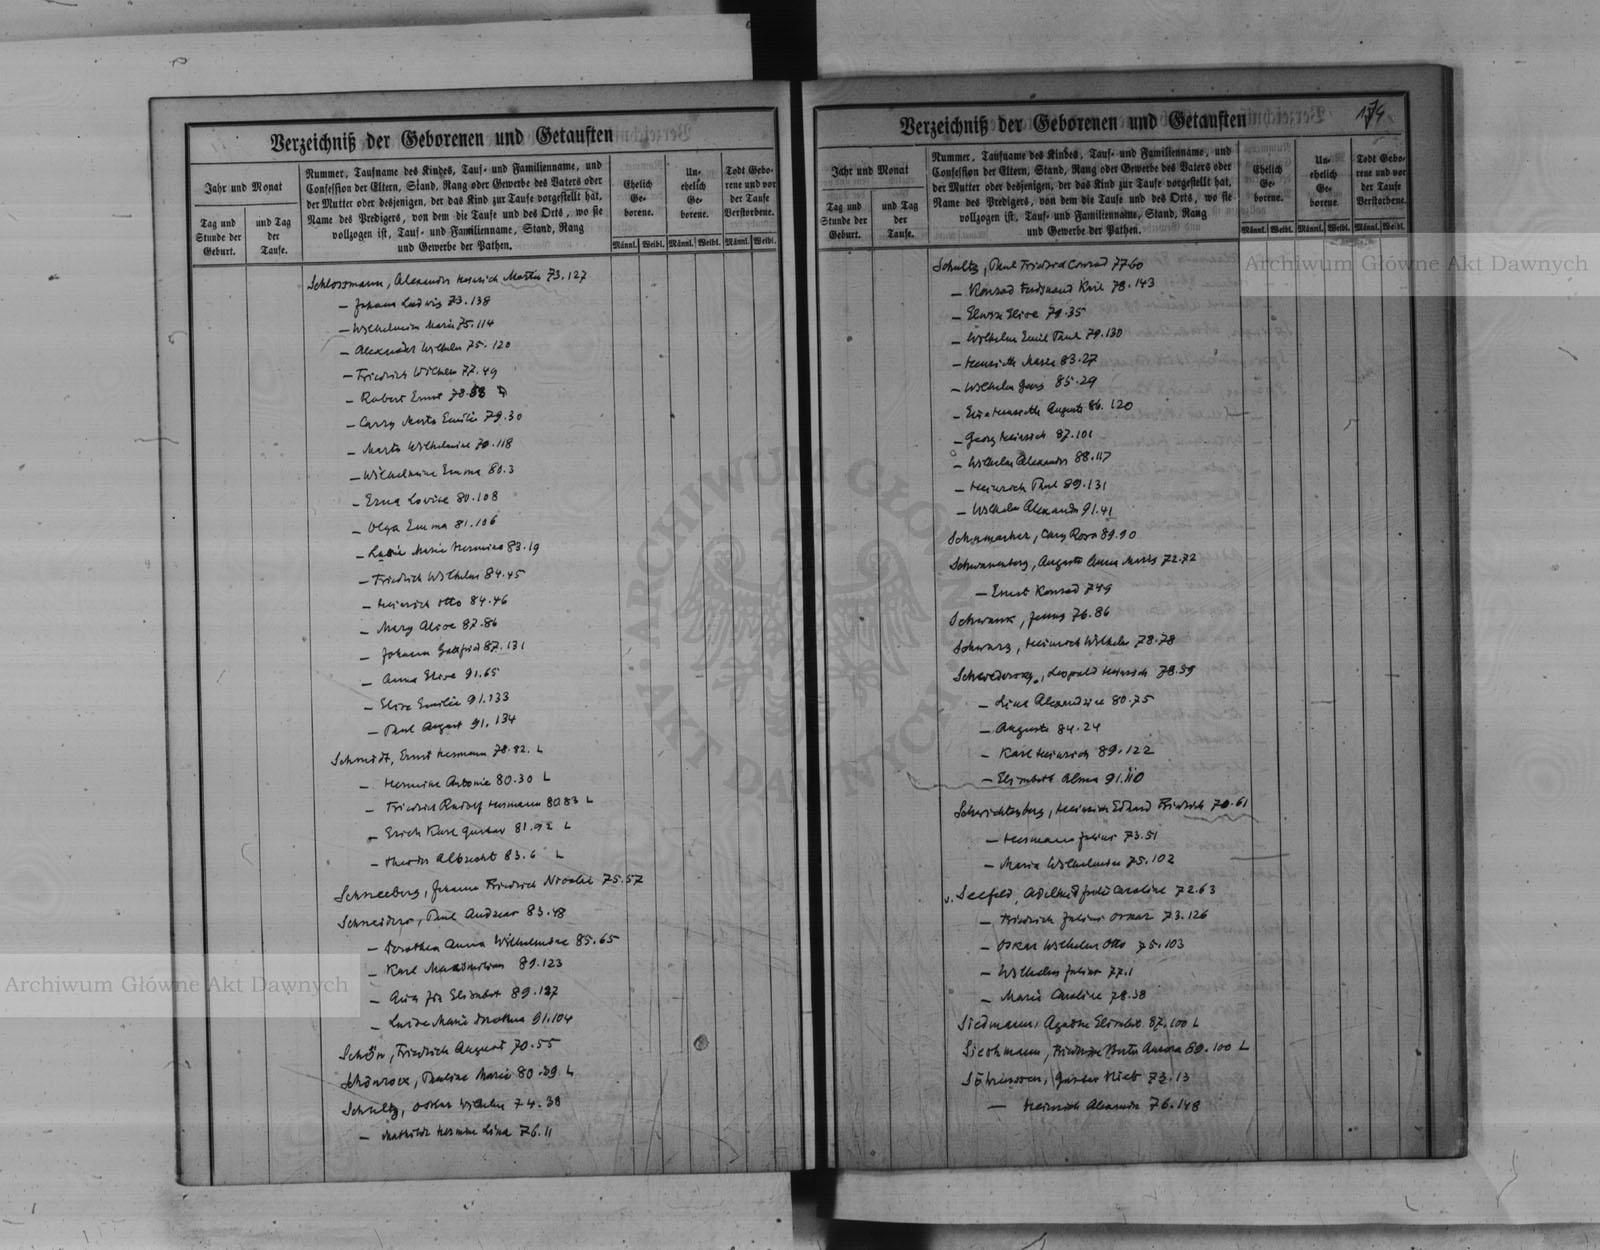 Verzeichniß der Geborenen und Getauften
Jahr und Monat
Tag und
Stunde der
Geburt.
und Tag
der
Taufe.
Nummer, Taufname des Kindes, Tauf- und Familienname, und
Confession der Eltern, Stand, Rang oder Gewerbe des Vaters oder
der Mutter oder desjenigen, der das Kind zur Taufe vorgestellt hat,
Name des Predigers, von dem die Taufe und des Orts, wo sie
vollzogen ist, Tauf- und Familienname, Stand, Rang
und Gewerbe der Pathen.
Ehelich
Ge-
borene.
Un-
ehelich
Ge-
borene.
Todt Gebo-
rene und vor
der Taufe
Verstorbene.
Männl. Weibl. Männl. Weibl. Männl. Weibl.
Schlossmann, Alexander Heinrich Martin 73.127
— Johann Ludwig 73.138
— Wilhelmine Marie 75.114
— Alexander Wilhelm 75.120
— Friedrich Wilhelm 77.49
— Robert Ernst 78.58
— Carry Marta Emilie 79.30
— Marta Wilhelmine 79.118
— Wilhelmine Emma 80.3
— Erna Lovise 80.108
— Olga Emma 81.106
— Marie Hermine 83.19
— Friedrich Wilhelm 84.45
— Heinrich Otto 84.46
— Mary Alice 87.86
— Johann Gottfried 87.131
— Anna Elise 91.65
— Elise Emilie 91.133
— Paul August 91.134
Schmidt, Ernst Hermann 78.82. L
— Hermine Antonie 80.30 L
— Friedrich Rudolf Hermann 80.83 L
— Erich Karl Gustav 81.92 L
— Albrecht 83.6 L
Schneeberg, Johann Friedrich Nicolai 75.57
Schneider, Paul Andreas 83.48
— Dorothea Anna Wilhelmine 85.65
— Karl Maximilian 89.123
— Elisabet 89.127
— Luise Marie Dorothea 91.104
Schön, Friedrich August 70.55
Schönrock, Pauline Marie 80.39 L
Schultz, Oskar Wilhelm 74.38
— Mathilde Hermine Lina 76.11
174
Verzeichniß der Geborenen und Getauften
Jahr und Monat
Tag und
Stunde der
Geburt.
und Tag
der
Taufe.
Nummer, Taufname des Kindes, Tauf- und Familienname, und
Confession der Eltern, Stand, Rang oder Gewerbe des Vaters oder
der Mutter oder desjenigen, der das Kind zur Taufe vorgestellt hat,
Name des Predigers, von dem die Taufe und des Orts, wo sie
vollzogen ist, Tauf- und Familienname, Stand, Rang
und Gewerbe der Pathen.
Ehelich
Ge-
borene.
Un-
ehelich
Ge-
borene.
Todt Gebo-
rene und vor
der Taufe
Verstorbene.
Männl. Weibl. Männl. Weibl. Männl. Weibl.
Schultz, Paul Friedrich Conrad 77.60
— Konrad Ferdinand Karl 78.143
— Elise 79.35
— Wilhelm Emil Paul 79.130
— Henriette Marie 83.27
— Wilhelm Georg 85.29
— Henriette Auguste 86.120
— Georg Heinrich 87.101
— Wilhelm Alexander 88.117
— Heinrich Paul 89.131
— Wilhelm Alexander 91.41
Schumacher, Rosa 89.90
Schwanenberg, Auguste Anna Maria 72.72
— Ernst Konrad 74.9
Schwank, Jenny 76.86
Schwarz, Heinrich Wilhelm 78.78
Leopold Heinrich 78.39
— Lina Alexandrine 80.75
— Auguste 84.24
— Karl Heinrich 89.122
— Elisabeth Alma 91.110
Schwichtenberg, Heinrich Eduard Friedrich 70.61
— Hermann Julius 73.51
— Maria Wilhelmine 75.102
v. Seefeld, Adelheid Caroline 72.63
— Friedrich Julius Oskar 73.126
— Oskar Wilhelm Otto 75.103
— Wilhelm Julius 77.1
— Marie Caroline 78.38
Siedmann, Agathe Elisabet 87.100 L
Siechmann, Aurora 89.100 L
Gustav 73.13
— Heinrich Alexander 76.148
Archiwum Główne Akt Dawnych
Archiwum Główne Akt Dawnych
ARCHIWUM GŁÓWNE AKT DAWNYCH